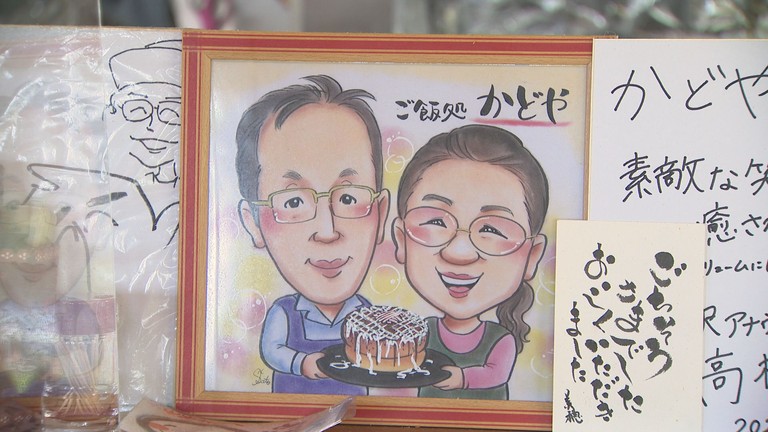 ご飯処 かどや
かどや
素敵な笑
癒さ
リュームに
アナウ
高
202
ごちそう
さまでした
おいしくいただき
ました